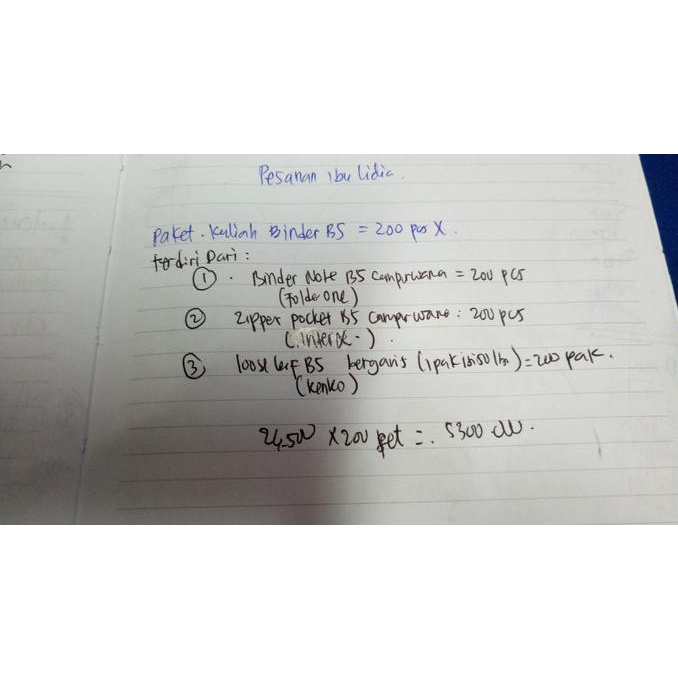 Pesanan ibu Lidia.
Paket. Kuliah Binder B5 = 200 pcs X.
terdiri Dari :
① . Binder Note B5 campurwarna = 200 pcs
(Folder one)
② Zipper pocket B5 campurwarna : 200 pcs
(Interx.) .
③ loose leaf B5 bergaris (1 pak isi 50 lbr) = 200 pak.
(Kenko)
X 200 set =.